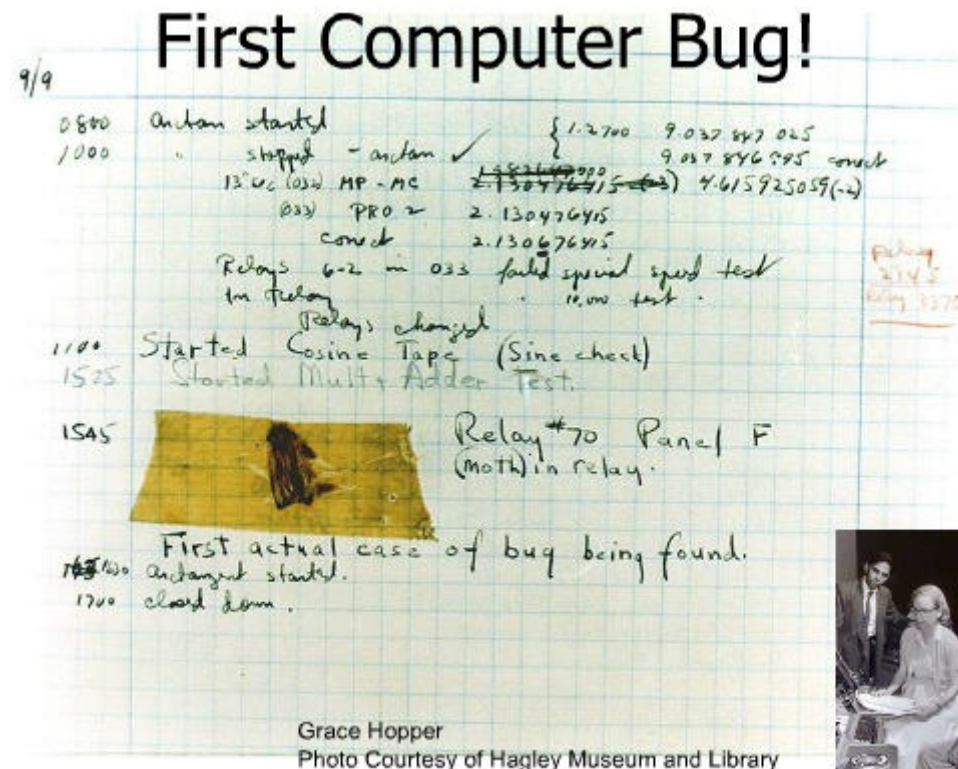 First Computer Bug!
9/9
0800 Antan started { 1.2700 9.037 847 025
1000 " stopped - antan ✓ 9.037 846 995 correct
13"uc (032) MP-MC 2.130476415 (-3) 4.615925059(-2)
(033) PRO 2 2.130476415
correct 2.130676415
Relays 6-2 in 033 failed special speed test
In Relay " 10,000 test .
Relay
2145
Relay 3370
Relays changed
1100 Started Cosine Tape (Sine check)
1525 Started Mult + Adder Test.
1545 Relay #70 Panel F
(moth) in relay.
First actual case of bug being found.
1630 antangent started.
1700 closed down.
Grace Hopper
Photo Courtesy of Hagley Museum and Library